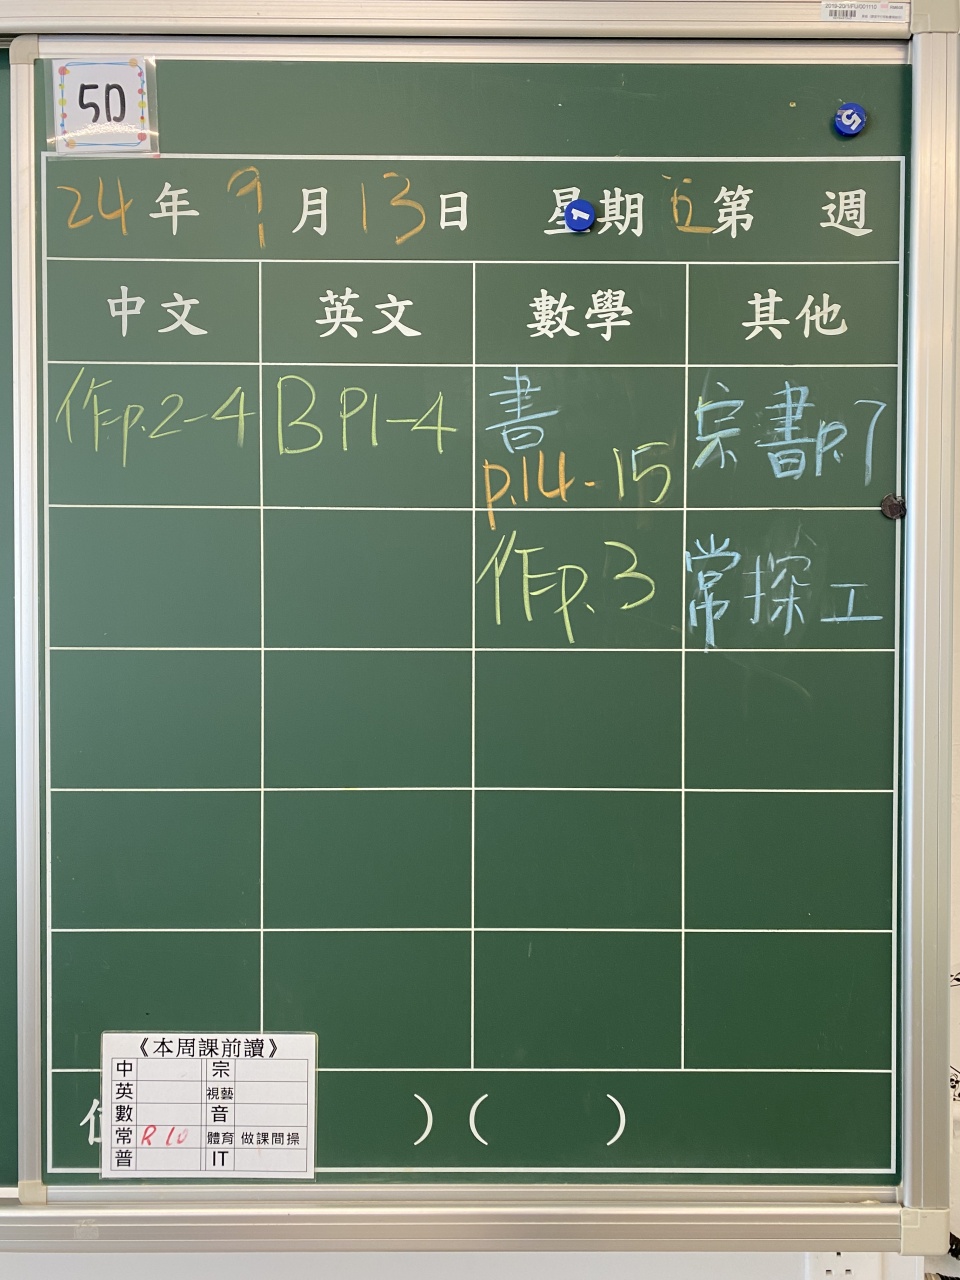 5D
5
24年9月13日 星期五第 週
1
中文 英文 數學 其他
作p.2-4 B P1-4 書p.14-15 宗書p.7
作p.3 常探工
《本周課前讀》
中 宗
英 視藝
數 音
常 R 10 體育 做課間操
普 IT
) ( )